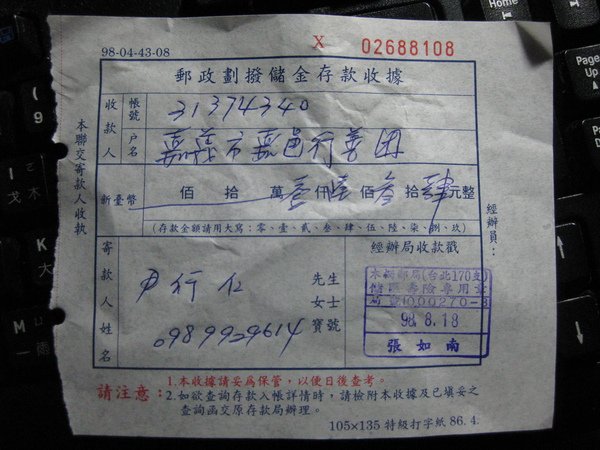 98-04-43-08 X 02688108
郵政劃撥儲金存款收據
收款人 帳號 31374340
戶名 嘉義市嘉邑行善團
新臺幣 佰 拾 萬 壹 仟 陸 佰 叁 拾 肆 元整
(存款金額請用大寫:零、壹、貳、叁、肆、伍、陸、柒、捌、玖)
寄款人姓名 尹行仁 先生 女士 寶號
0989929614
經辦局收款戳
木柵郵局(台北170支)
儲匯壽險專用章
局號000270-8
98.8.18
張如南
本聯交寄款人收執
經辦員:
請注意:1.本收據請妥為保管,以便日後查考。
2.如欲查詢存款入帳詳情時,請檢附本收據及已填妥之
查詢函交原存款局辦理。
105×135 特級打字紙 86.4.
Home
Page Up
9
K
M